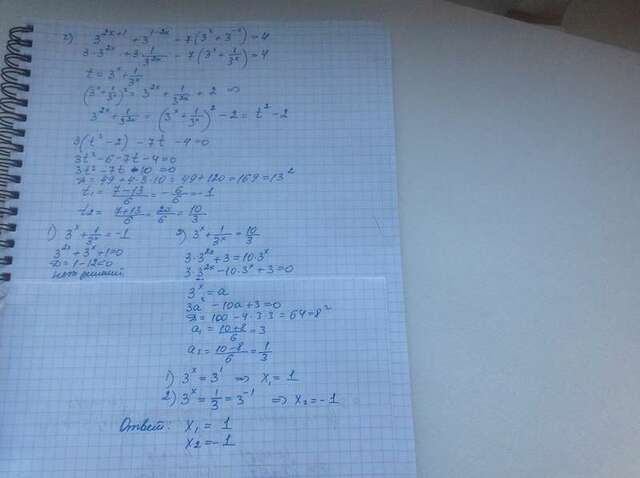 2) 3^{2x+1} + 3^{1-2x} - 7(3^x + 3^{-x}) = 4
3·3^{2x} + 3·1/3^{2x} - 7(3^x + 1/3^x) = 4
t = 3^x + 1/3^x
(3^x + 1/3^x)² = 3^{2x} + 1/3^{2x} + 2 ⇒
3^{2x} + 1/3^{2x} = (3^x + 1/3^x)² - 2 = t² - 2
3(t² - 2) - 7t - 4 = 0
3t² - 6 - 7t - 4 = 0
3t² - 7t - 10 = 0
D = 49 + 4·3·10 = 49 + 120 = 169 = 13²
t₁ = (7-13)/6 = -6/6 = -1
t₂ = (7+13)/6 = 20/6 = 10/3
1) 3^x + 1/3^x = -1
3^{2x} + 3^x + 1 = 0
D = 1 - 12 < 0
нет решений
2) 3^x + 1/3^x = 10/3
3·3^{2x} + 3 = 10·3^x
3·3^{2x} - 10·3^x + 3 = 0
3^x = a
3a² - 10a + 3 = 0
D = 100 - 4·3·3 = 64 = 8²
a₁ = (10+8)/6 = 3
a₂ = (10-8)/6 = 1/3
1) 3^x = 3^1 ⇒ x₁ = 1
2) 3^x = 1/3 = 3^{-1} ⇒ x₂ = -1
Ответ: x₁ = 1
x₂ = -1